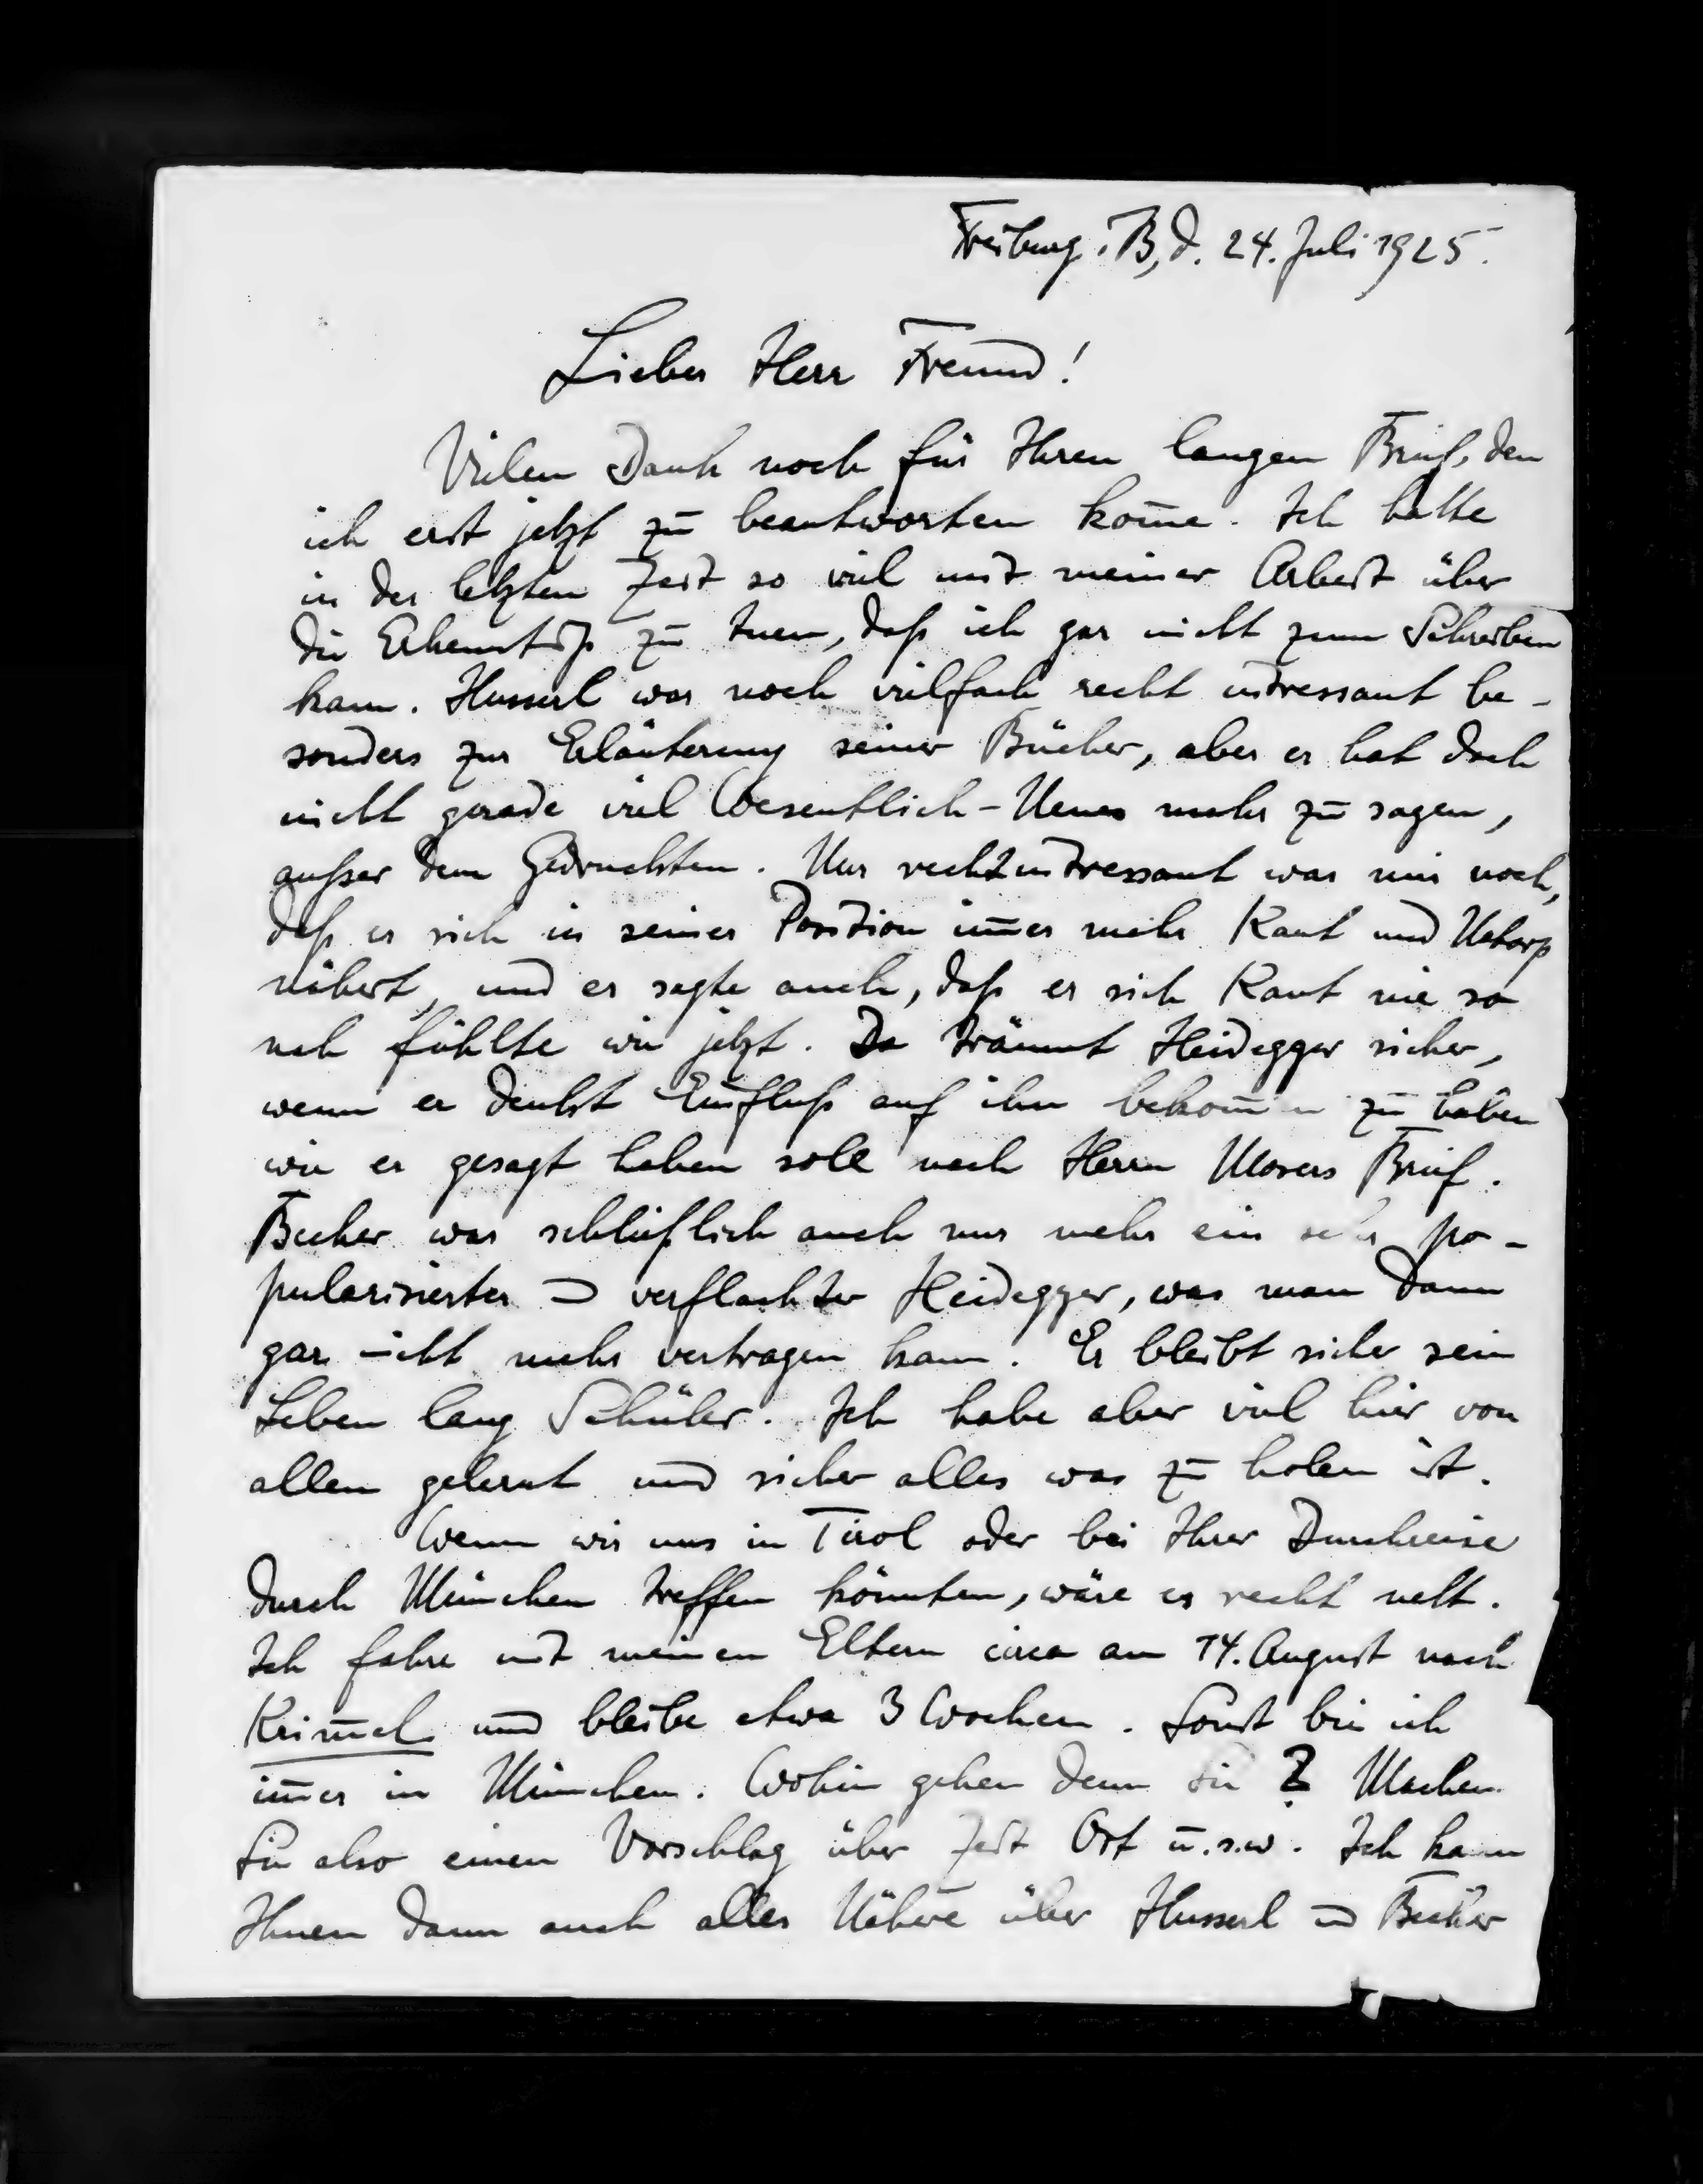 Freiburg i. B, d. 24. Juli 1925.
Lieber Herr Freund!
Vielen Dank noch für Ihren langen Brief, den
ich erst jetzt zu beantworten kom̅e. Ich hatte
in der letzten Zeit so viel mit meiner Arbeit über
die zu tuen, daß ich gar nicht zum Schreiben
kam. Husserl war noch vielfach recht intressant be-
sonders zur Erläuterung seiner Bücher, aber er hat doch
nicht gerade viel Wesentlich-Neues mehr zu sagen,
außer dem Gedruckten. Nur recht intressant war mir noch,
daß er sich in seiner Position im̅er mehr Kant und Natorp
nähert, und er sagte auch, daß er sich Kant nie so
nah fühlte wie jetzt. Da träumt Heidegger sicher,
wenn er denkt Einfluß auf ihn bekom̅en zu haben
wie er gesagt haben soll nach Herrn Mosers Brief.
Becker war schließlich auch nur mehr ein sehr po-
pularisierter u verflachter Heidegger, was man dann
gar nicht mehr vertragen kann. Er bleibt sicher sein
Leben lang Schüler. Ich habe aber viel hier von
allen gelernt und sicher alles was zu holen ist.
Wenn wir uns in Tirol oder bei Ihrer Durchreise
durch München treffen könnten, wäre es recht nett.
Ich fahre mit meinen Eltern circa am 14. August nach
Krim̅el und bleibe etwa 3 Wochen. Sonst bin ich
im̅er in München. Wohin gehen denn Sie? Machen
Sie also einen Vorschlag über Zeit Ort u.s.w. Ich kann
Ihnen dann auch alles Nähere über Husserl u Becker